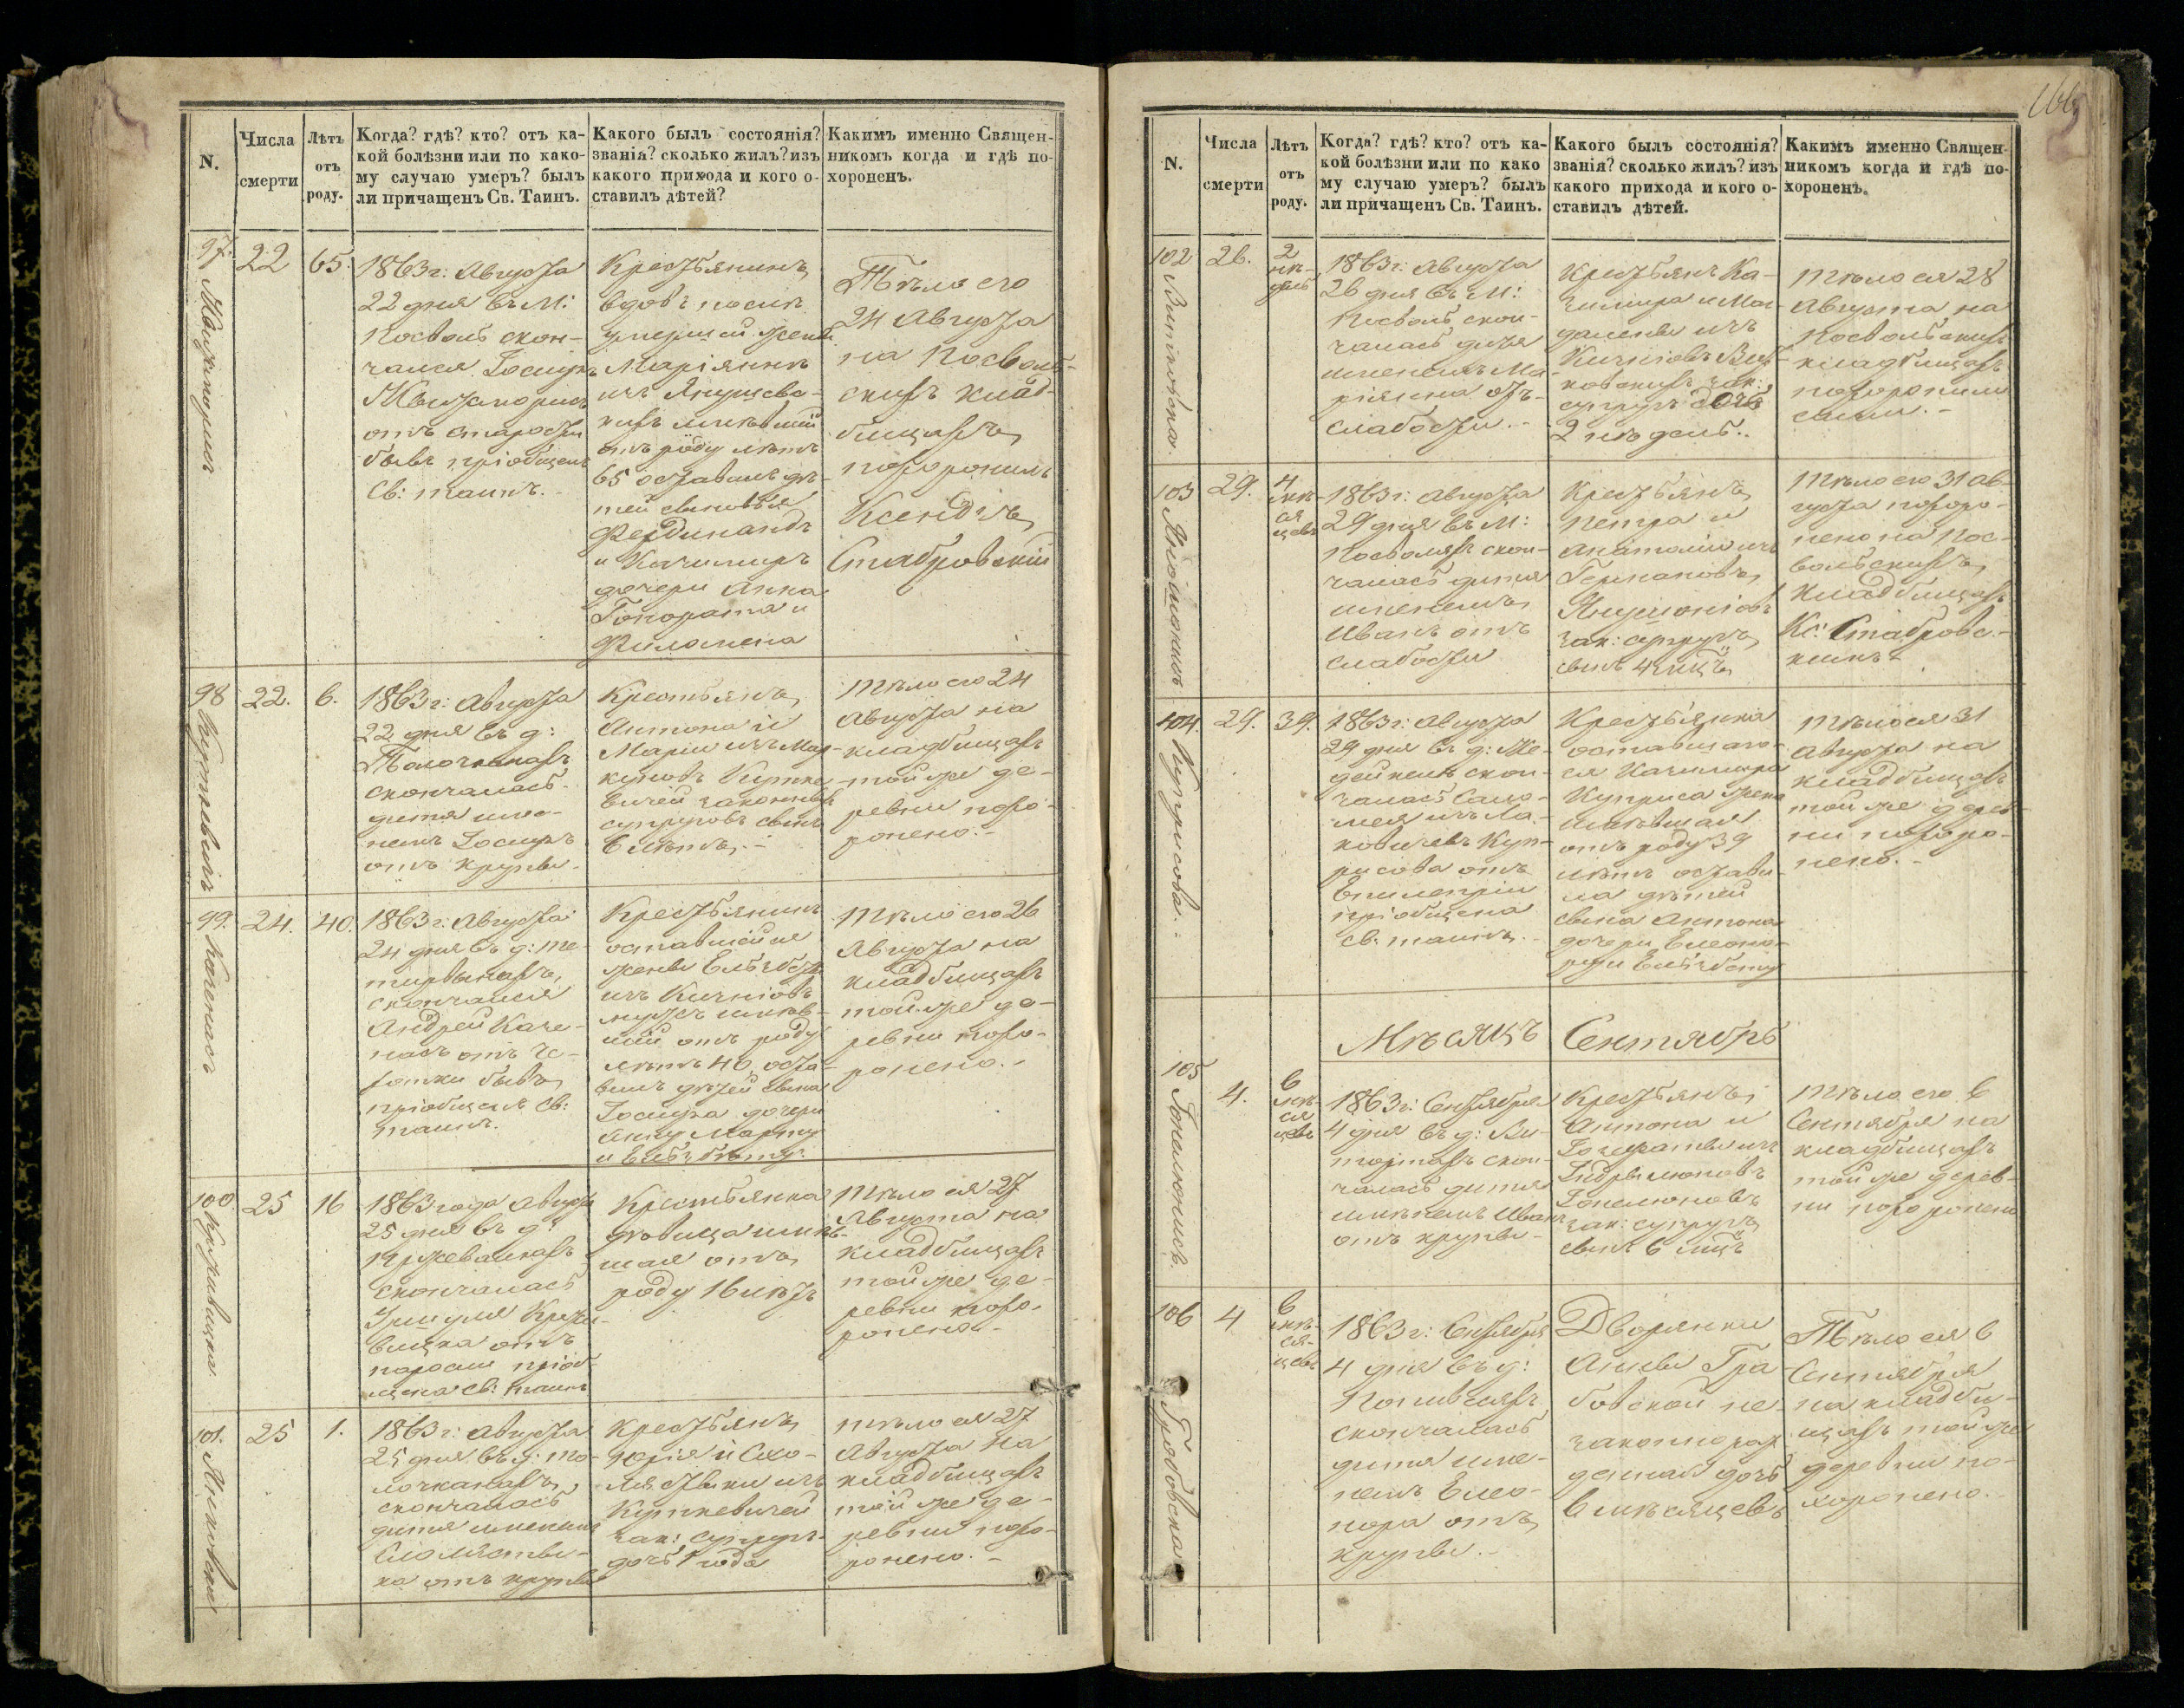 N.
Числа
смерти
Лѣтъ
отъ
роду.
Когда? гдѣ? кто? отъ ка-
кой болѣзни или по како-
му случаю умеръ? былъ
ли причащенъ Св. Таинъ.
Какого былъ состоянія?
званія? сколько жилъ? изъ
какого прихода и кого о-
ставилъ дѣтей?
Какимъ именно Священ-
никомъ когда и гдѣ по-
хороненъ.
97.
22
65.
1863 г: Августа
22 дня въ М:
Посволь скон-
чался Іосифъ
отъ старости
бывъ пріобщенъ
Св: таинъ.
Крестьянинъ
вдовъ послѣ
умершей жены
Маріянны
имѣвшій
отъ роду лѣтъ
65 оставилъ дѣ-
тей сыновья
Фердинандъ
и Казимиръ
дочери Анна
Гонората и
Филомена
Тѣло его
24 Августа
на Посволь-
скихъ клад-
бищахъ
похоронилъ
Ксендзъ
Стабровскій
98
Куткевичъ
22.
6.
1863 г: Августа
22 дня въ д:
Толочканахъ
скончалось
дитя име-
немъ Іосифъ
отъ крупы
Крестьянъ
Антона и
Маріи изъ
супруговъ сынъ
6 лѣтъ.-
Тѣло его 24
Августа на
кладбищахъ
той же де-
ревни похо-
ронено.-
99.
Каченасъ
24.
40.
1863 г: Августа
24 дня въ д:
скончался
Андрей Каче-
насъ отъ че-
хотки бывъ
пріобщенъ св:
таинъ.
Крестьянинъ
жены Ельзбеты
мужъ имѣв-
шій отъ роду
лѣтъ 40 оста-
вилъ дѣтей сына
Іосифа дочери
Анну Марту
и Ельзбету.
Тѣло его 26
Августа на
кладбищахъ
той же де-
ревни похо-
ронено.-
100.
25
16
1863 года Августа
25 дня въ д:
скончалась
Уршуля
отъ
пріоб-
щена св: таинъ
Крестьянка
дѣвица имѣв-
шая отъ
роду 16 лѣтъ
Тѣло ея 27
Августа на
кладбищахъ
той же де-
ревни похо-
ронено.-
101.
25
1.
1863 г: Августа
25 дня въ д: То-
лочканахъ
скончалось
дитя именемъ
Схоласты-
ка отъ крупы
Крестьянъ
Юрія и Схо-
ластыки изъ
Куткевичей
зак: супруг:
дочь 1 года
Тѣло ея 27
Августа на
кладбищахъ
той же де-
ревни похо-
ронено.-
166
N.
Числа
смерти
Лѣтъ
отъ
роду.
Когда? гдѣ? кто? отъ ка-
кой болѣзни или по како
му случаю умеръ? былъ
ли причащенъ Св. Таинъ.
Какого былъ состоянія?
званія? сколько жилъ? изъ
какого прихода и кого о-
ставилъ дѣтей.
Какимъ именно Священ-
никомъ когда и гдѣ по-
хороненъ.
102
26.
2
не-
дель
1863 г: Августа
26 дня въ М:
Посволь скон-
чалось дитя
именемъ Ма-
ріянна отъ
слабости.-
Крестьянъ Ка-
зимира и Маг-
далены изъ
зак:
супругъ дочь
2 недель.
Тѣло ея 28
Августа на
Посвольскихъ
кладбищахъ
похоронили
сами.-
103
29.
4
мѣ-
ся
цевъ
1863 г: Августа
29 дня въ М:
Посволяхъ скон-
чалось дитя
именемъ
Иванъ отъ
слабости
Крестьянъ
Петра и
Анатоліи изъ
зак: супругъ
сынъ 4 мцъ
Тѣло его 31 Ав-
густа похоро-
нено на Пос-
вольскихъ
кладбищахъ
Кс: Стабровс-
кимъ
104.
Куприсова.-
29.
39.
1863 г: Августа
29 дня въ д:
скон-
чалась Сало-
мея изъ
Куп-
рисова отъ
Епилепсіи
пріобщена
св: таинъ.-
Крестьянка
оставшаго-
ся Казимира
Куприса жена
имѣвшая
отъ роду 39
лѣтъ остави-
ла дѣтей
сына Антона
дочери Елеоно-
ру и Ельзбету
Тѣло ея 31
Августа на
кладбищахъ
той же дерев-
ни похоро-
нено.-
Мѣсяцъ Сентябрь
105
4.
6
мѣ-
ся
цевъ
1863 г: Сентября
4 дня въ д:
скон-
чалось дитя
именемъ Иванъ
отъ крупы
Крестьянъ
Антона и
зак: супругъ
сынъ 6 мцъ
Тѣло его 6
Сентября на
кладбищахъ
той же дерев-
ни похоронено
106
Грабовска
4
6
мѣ-
ся-
цевъ
1863 г: Сентября
4 дня въ д:
скончалось
дитя име-
немъ Елео-
нора отъ
крупы.-
Дворянки
Анны Гра-
бовской не-
законнорож-
денная дочь
6 мѣсяцевъ
Тѣло ея 6
Сентября
на кладби-
щахъ той же
деревни по-
хоронено.-